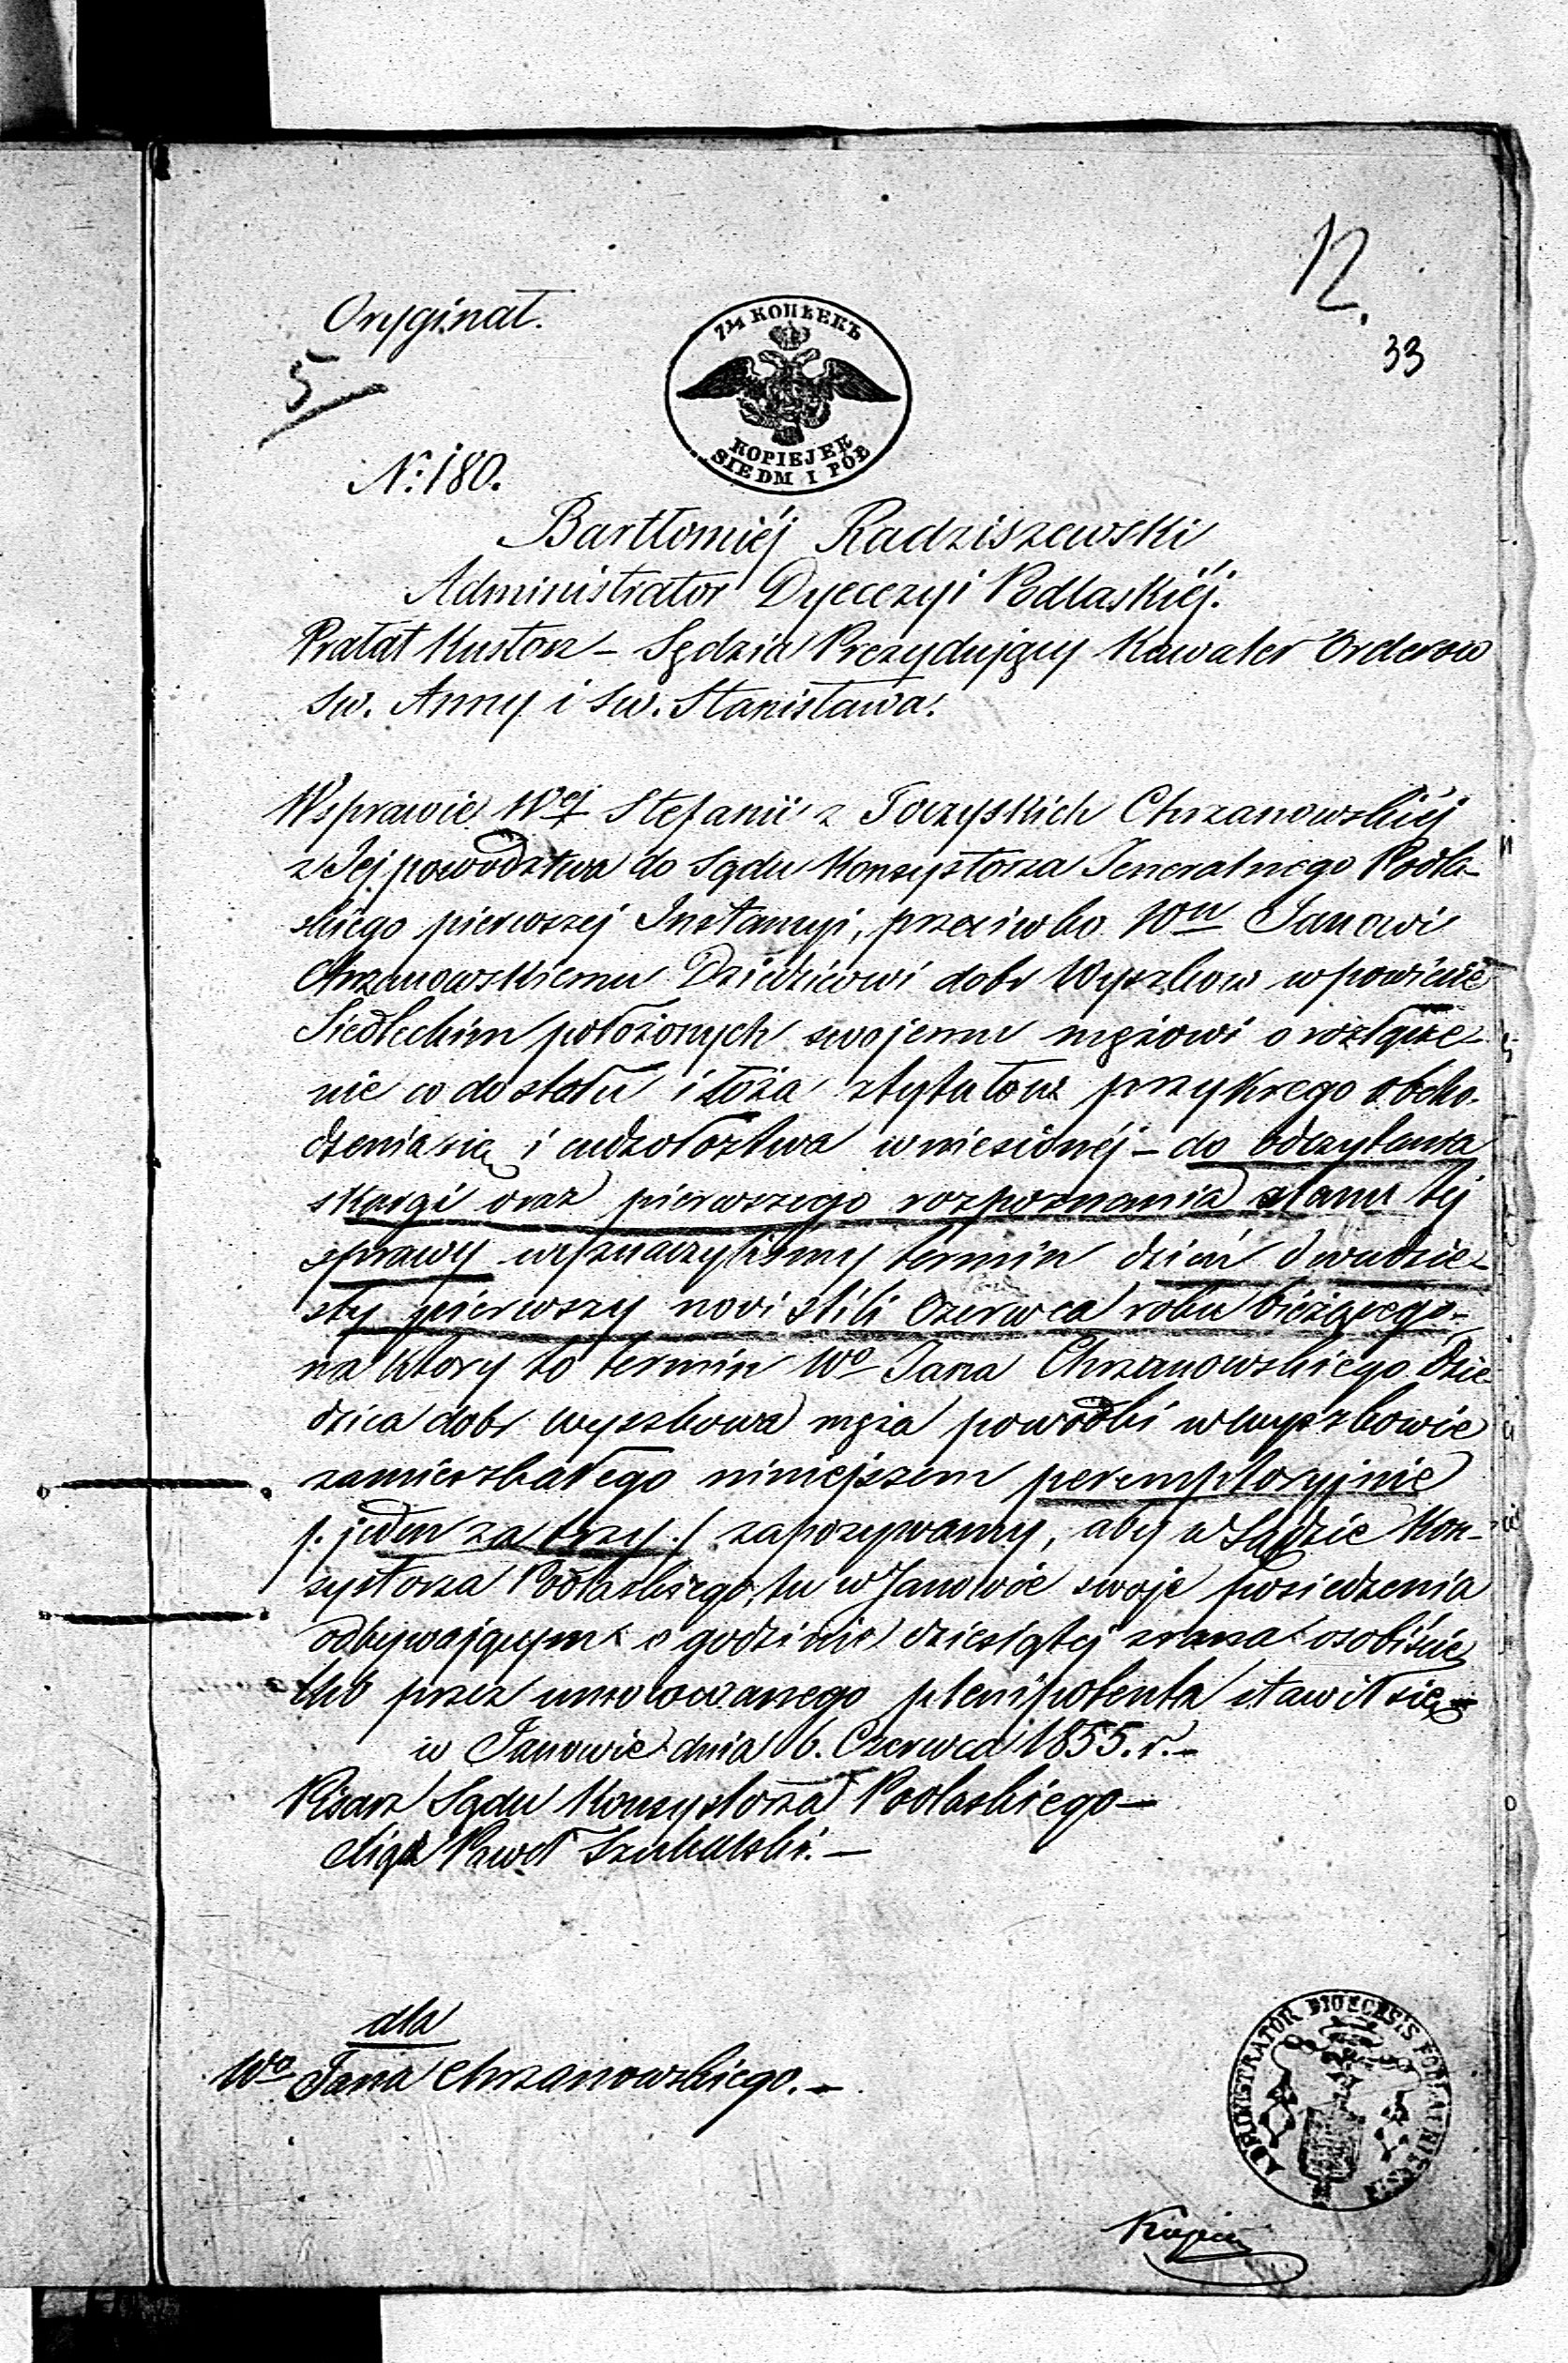 Oryginał.
12.
33
5
7½ КОПѢЕКЪ
KOPIEJEK
SIEDM I PÓŁ
N: 180.
Bartłomiéj Radziszewski
Administrator Dyecezyi Podlaskiéj.
Prałat Kustosz – Sędzia Prezydujący Kawaler Orderow
Sw. Anny i Sw. Stanisława.
W sprawie Wej Stefanii z Toczyskich Chrzanowskiéj
z Jej powodztwa do Sądu Konsystorza Jeneralnego Podla-
skiego pierwszej Instancyi, przeciwko Wu Janowi
Chrzanowskiemu Dziedzicowi dobr Wyszkow w powiecie
Siedleckim położonych swojemu mężowi o rozłącze-
nie co do stołu i łoża z tytułow przykrego obcho-
dzenia się i cudzołoztwa wniesionéj – do odczytania
skargi oraz pierwszego rozpoznania stanu tej
sprawy wyznaczyliśmy termin dzień dwudzie-
sty pierwszy novi stili Czerwca roku bieżącego –
na ktory to termin Wo Jana Chrzanowskiego Dzie-
dzica dobr Wyszkowa męża powodki w Wyszkowie
zamieszkałego niniejszem peremptoryjnie
/. jeden za trzy ./ zapozywamy, aby w Sądzie Kon-
systorza Podlaskiego, tu w Janowie swoje posiedzenia
odbywającym o godzinie dziesiątej zrana osobiście
lub przez umocowanego plenipotenta stawił się –
w Janowie dnia 6. Czerwca 1855. r. –
Pisarz Sądu Konsystorza Podlaskiego –
Paweł Szubalski. –
dla
Wo Jana Chrzanowskiego. –
ADMINISTRATOR DIOECESIS